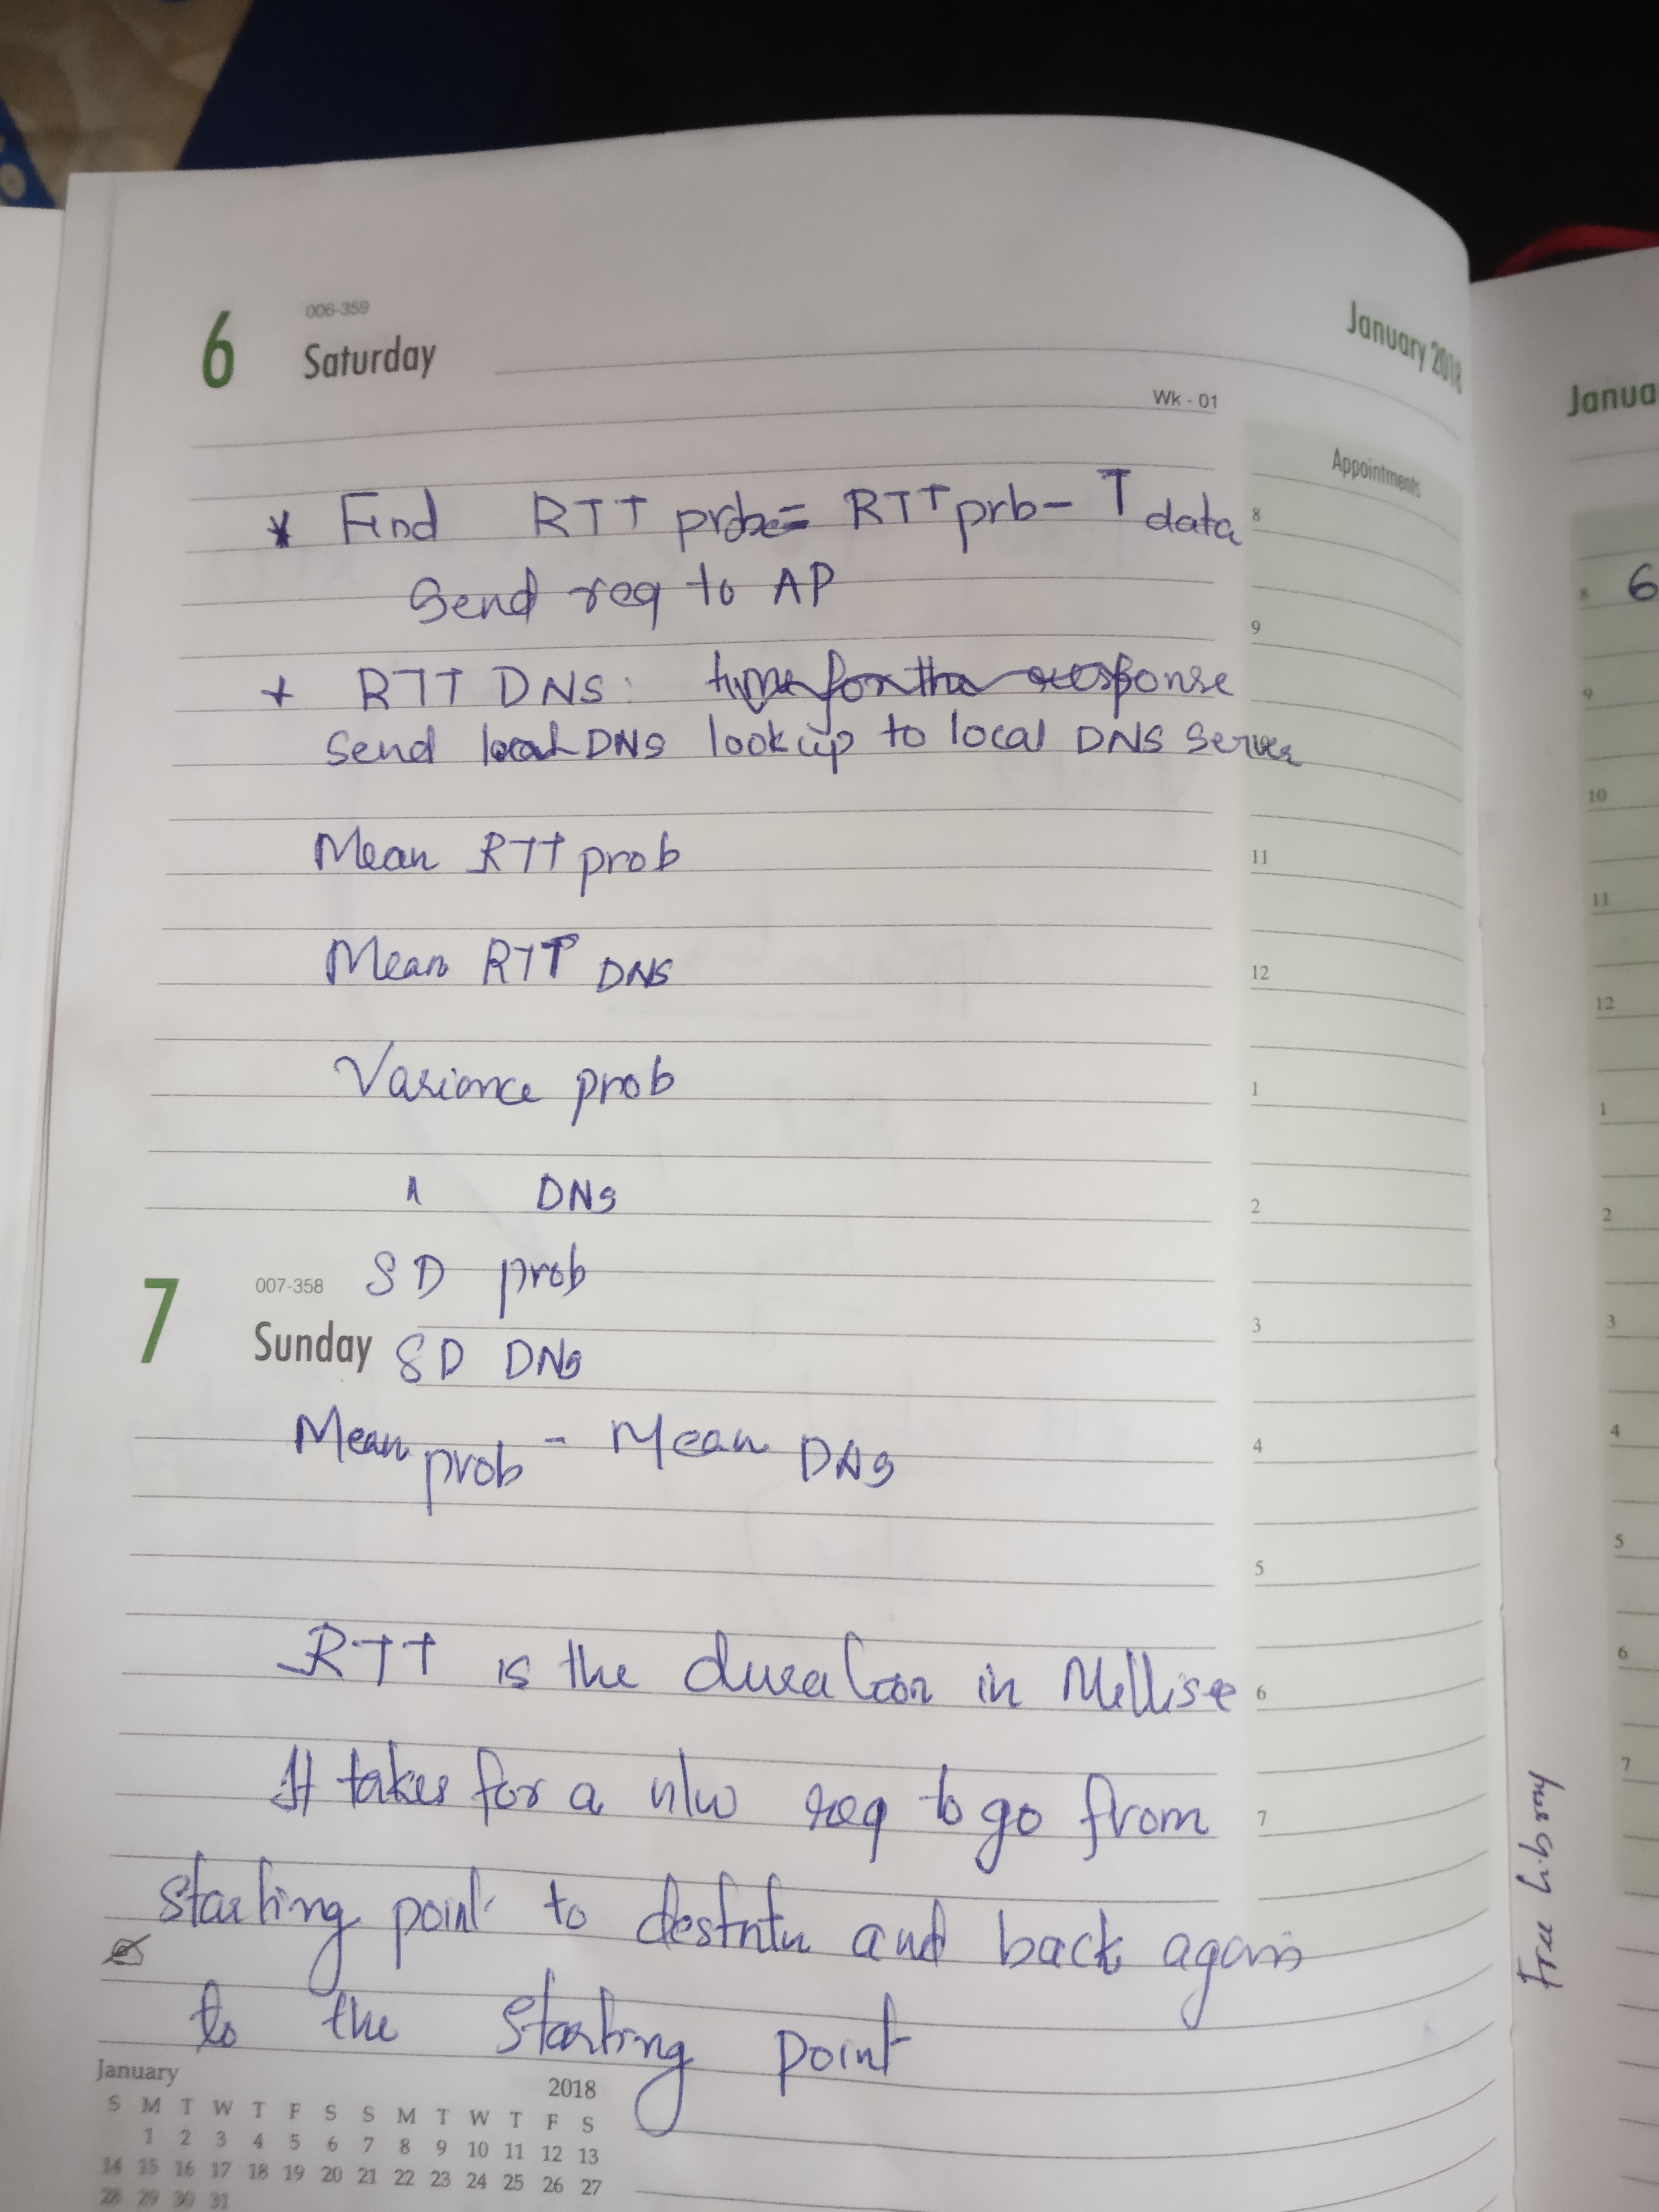 006-359
6 Saturday
January 2018
Wk - 01
Appointments
* Find RTT probe = RTT prb - T data
Send req to AP
+ RTT DNS: time for the response
Send local DNS lookup to local DNS Server
Mean RTT prob
Mean RTT DNS
Variance prob
" DNS
SD prob
007-358
7 Sunday
SD DNS
Mean prob - Mean DNS
RTT is the duration in Millise
It takes for a n/w req to go from
starting point to destntn and back again
to the starting point
8
9
10
11
12
1
2
3
4
5
6
7
January 2018
S M T W T F S S M T W T F S
1 2 3 4 5 6 7 8 9 10 11 12 13
14 15 16 17 18 19 20 21 22 23 24 25 26 27
28 29 30 31
Janua
8 6
9
10
11
12
1
2
3
4
5
6
7
Free Library